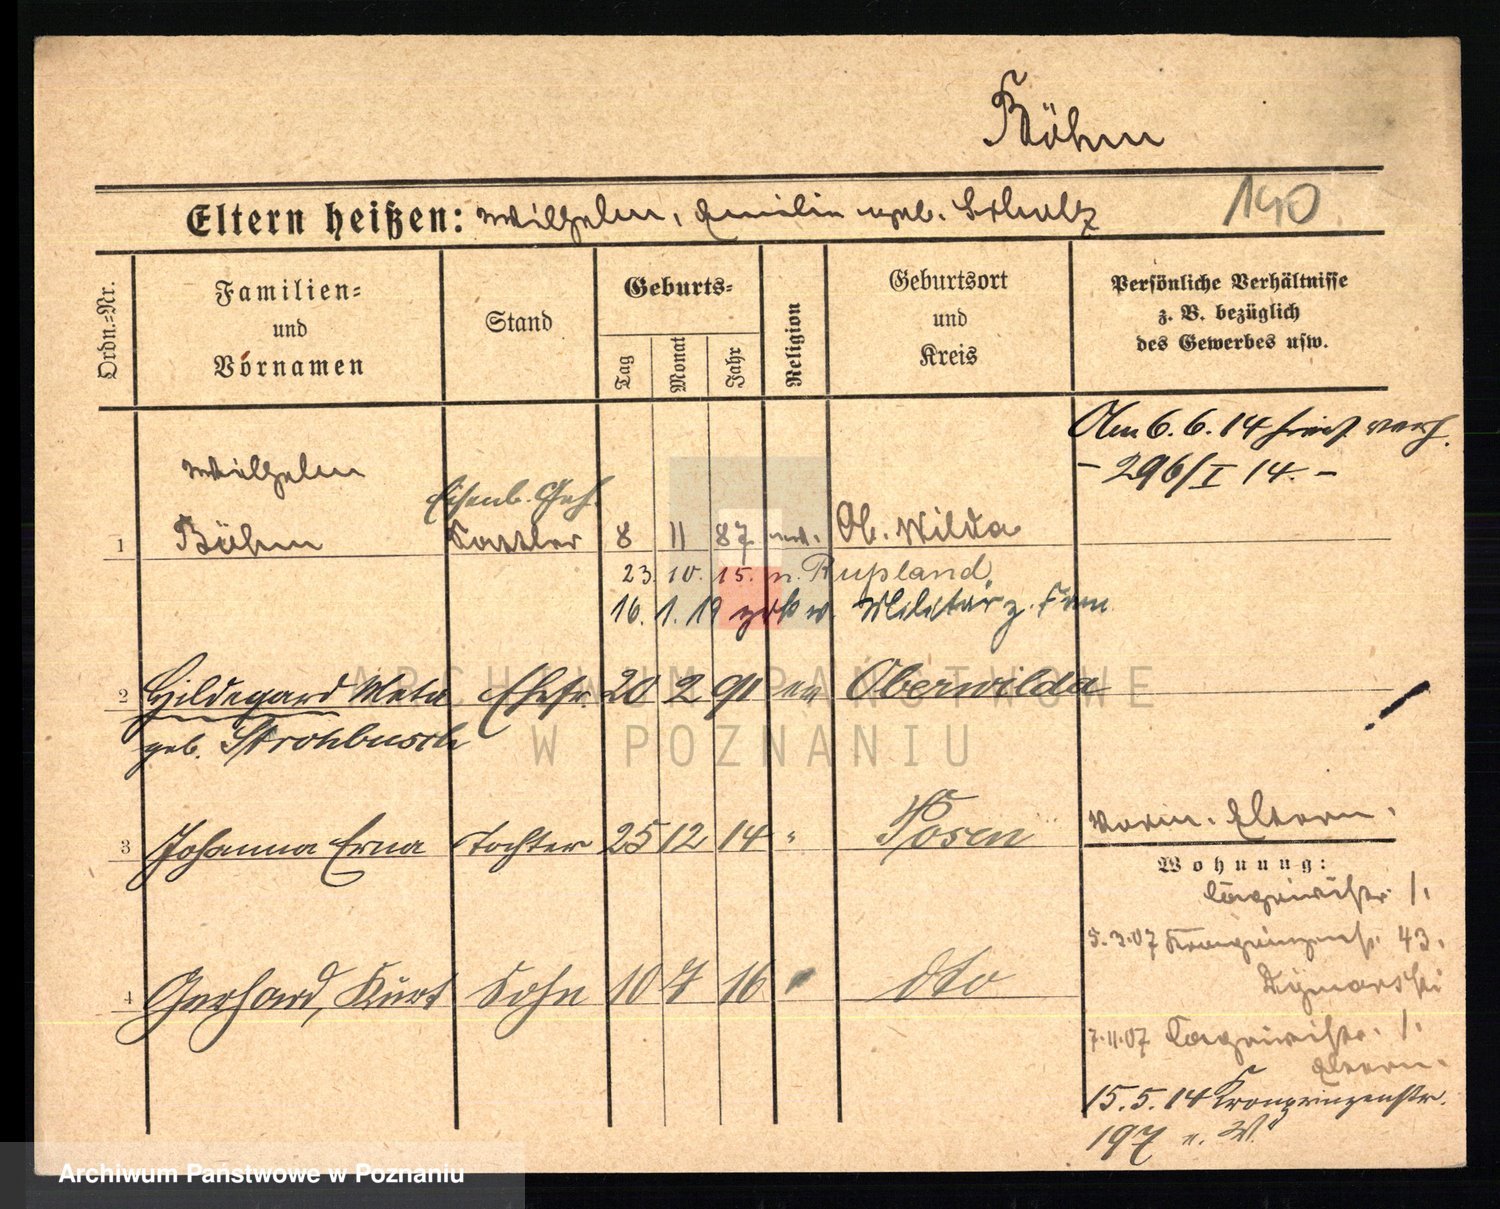 Böhm
Eltern heißen: Wilhelm, Emilie geb. Schulz
140
Ordn.=Nr.
Familien=
und
Vornamen
Stand
Geburts=
Tag
Monat
Jahr
Religion
Geburtsort
und
Kreis
Persönliche Verhältnisse
z. B. bezüglich
des Gewerbes usw.
Am 6. 6. 14 hier verh.
- 296/I 14. -
Wilhelm
Eisenb. Geh.
1 Böhm Sattler 8 11 87 ev. Ob. Wilda
23. 10. 15. n. Rußland
16. 1. 19 zrk v. Militär z. Frau
2 Hildegard Meta Ehefr. 20 2 91 ev Oberwilda
geb. Strohbusch
3 Johanna Erna Tochter 25 12 14 " Posen
Vorm. Eltern.
Wohnung:
1.
4 Gerhard, Kurt Sohn 10 7 16 " dto
5.3.07 Kronprinzenstr. 43.
7.11.07 1.
Eltern.
15.5.14 Kronprinzenstr.
197 n. W.
ARCHIWUM PAŃSTWOWE
W POZNANIU
Archiwum Państwowe w Poznaniu